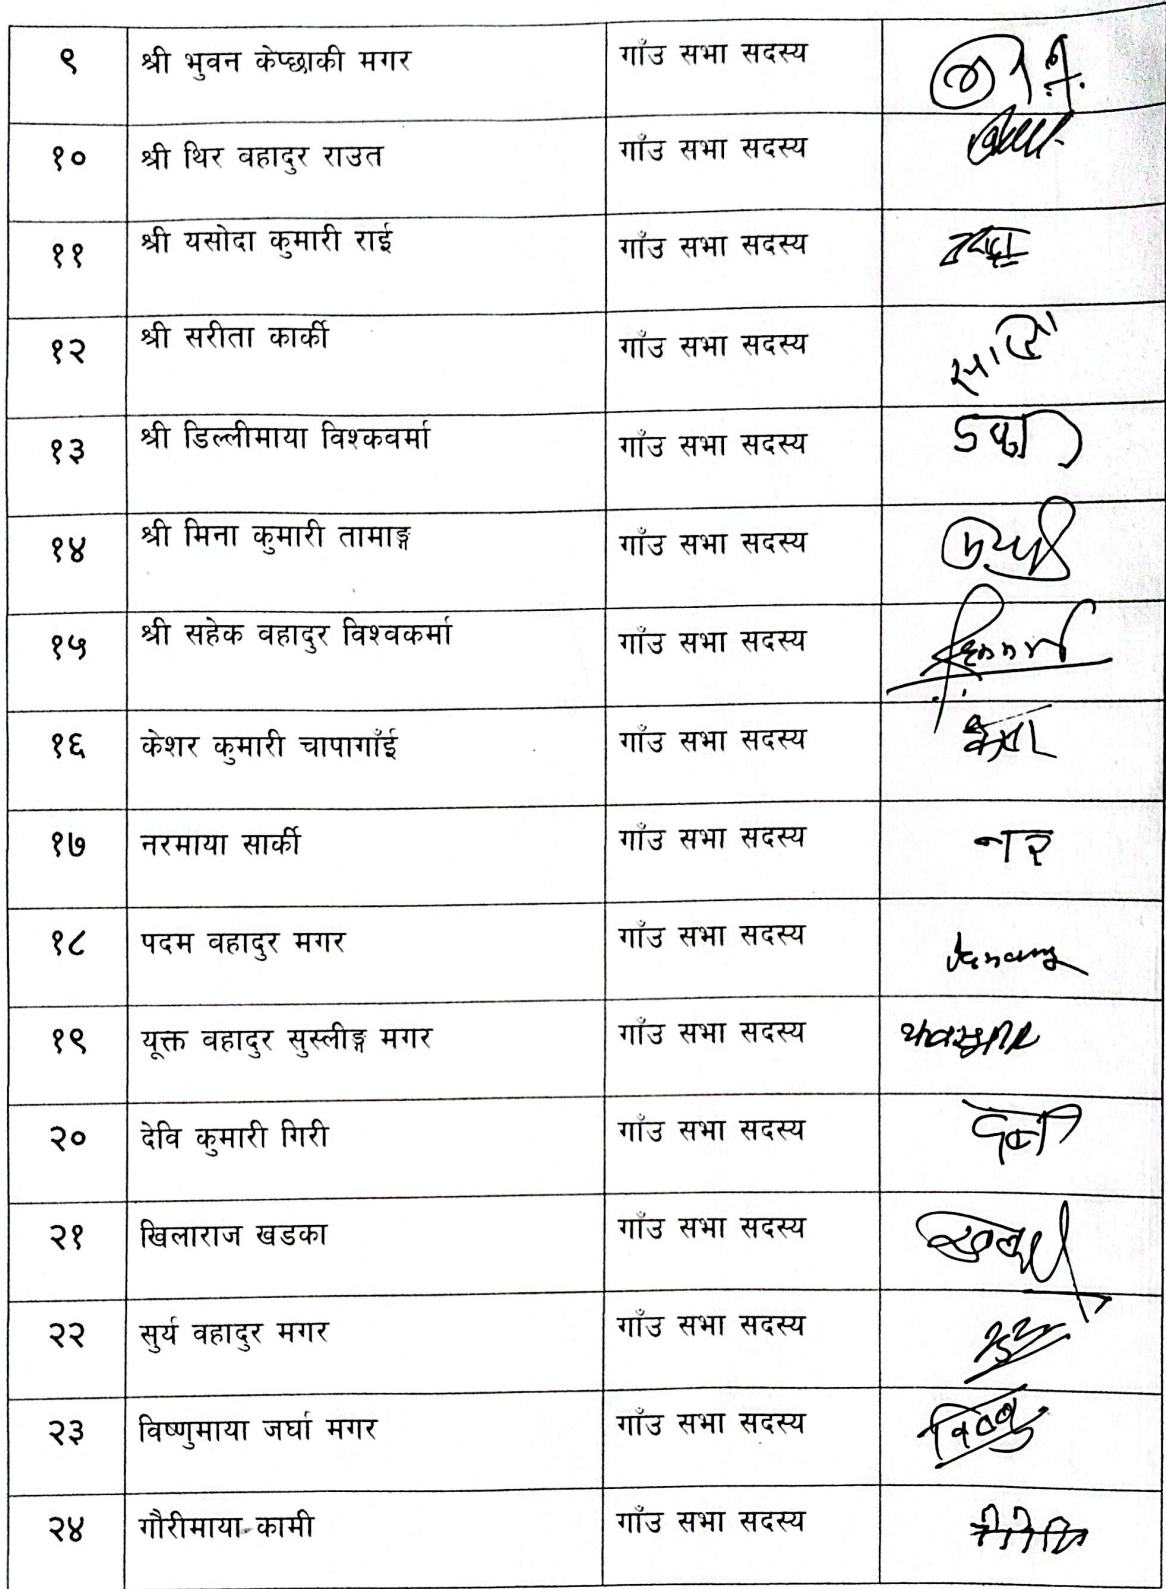 ९ श्री भुवन केप्छाकी मगर गाँउ सभा सदस्य
१० श्री थिर वहादुर राउत गाँउ सभा सदस्य
११ श्री यसोदा कुमारी राई गाँउ सभा सदस्य
१२ श्री सरीता कार्की गाँउ सभा सदस्य
१३ श्री डिल्लीमाया विश्कवर्मा गाँउ सभा सदस्य
१४ श्री मिना कुमारी तामाङ्ग गाँउ सभा सदस्य
१५ श्री सहेक वहादुर विश्वकर्मा गाँउ सभा सदस्य
१६ केशर कुमारी चापागाँई गाँउ सभा सदस्य
१७ नरमाया सार्की गाँउ सभा सदस्य नर
१८ पदम वहादुर मगर गाँउ सभा सदस्य
१९ यूक्त वहादुर सुस्लीङ्ग मगर गाँउ सभा सदस्य
२० देवि कुमारी गिरी गाँउ सभा सदस्य देवी
२१ खिलाराज खडका गाँउ सभा सदस्य
२२ सुर्य वहादुर मगर गाँउ सभा सदस्य
२३ विष्णुमाया जर्घा मगर गाँउ सभा सदस्य
२४ गौरीमाया कामी गाँउ सभा सदस्य